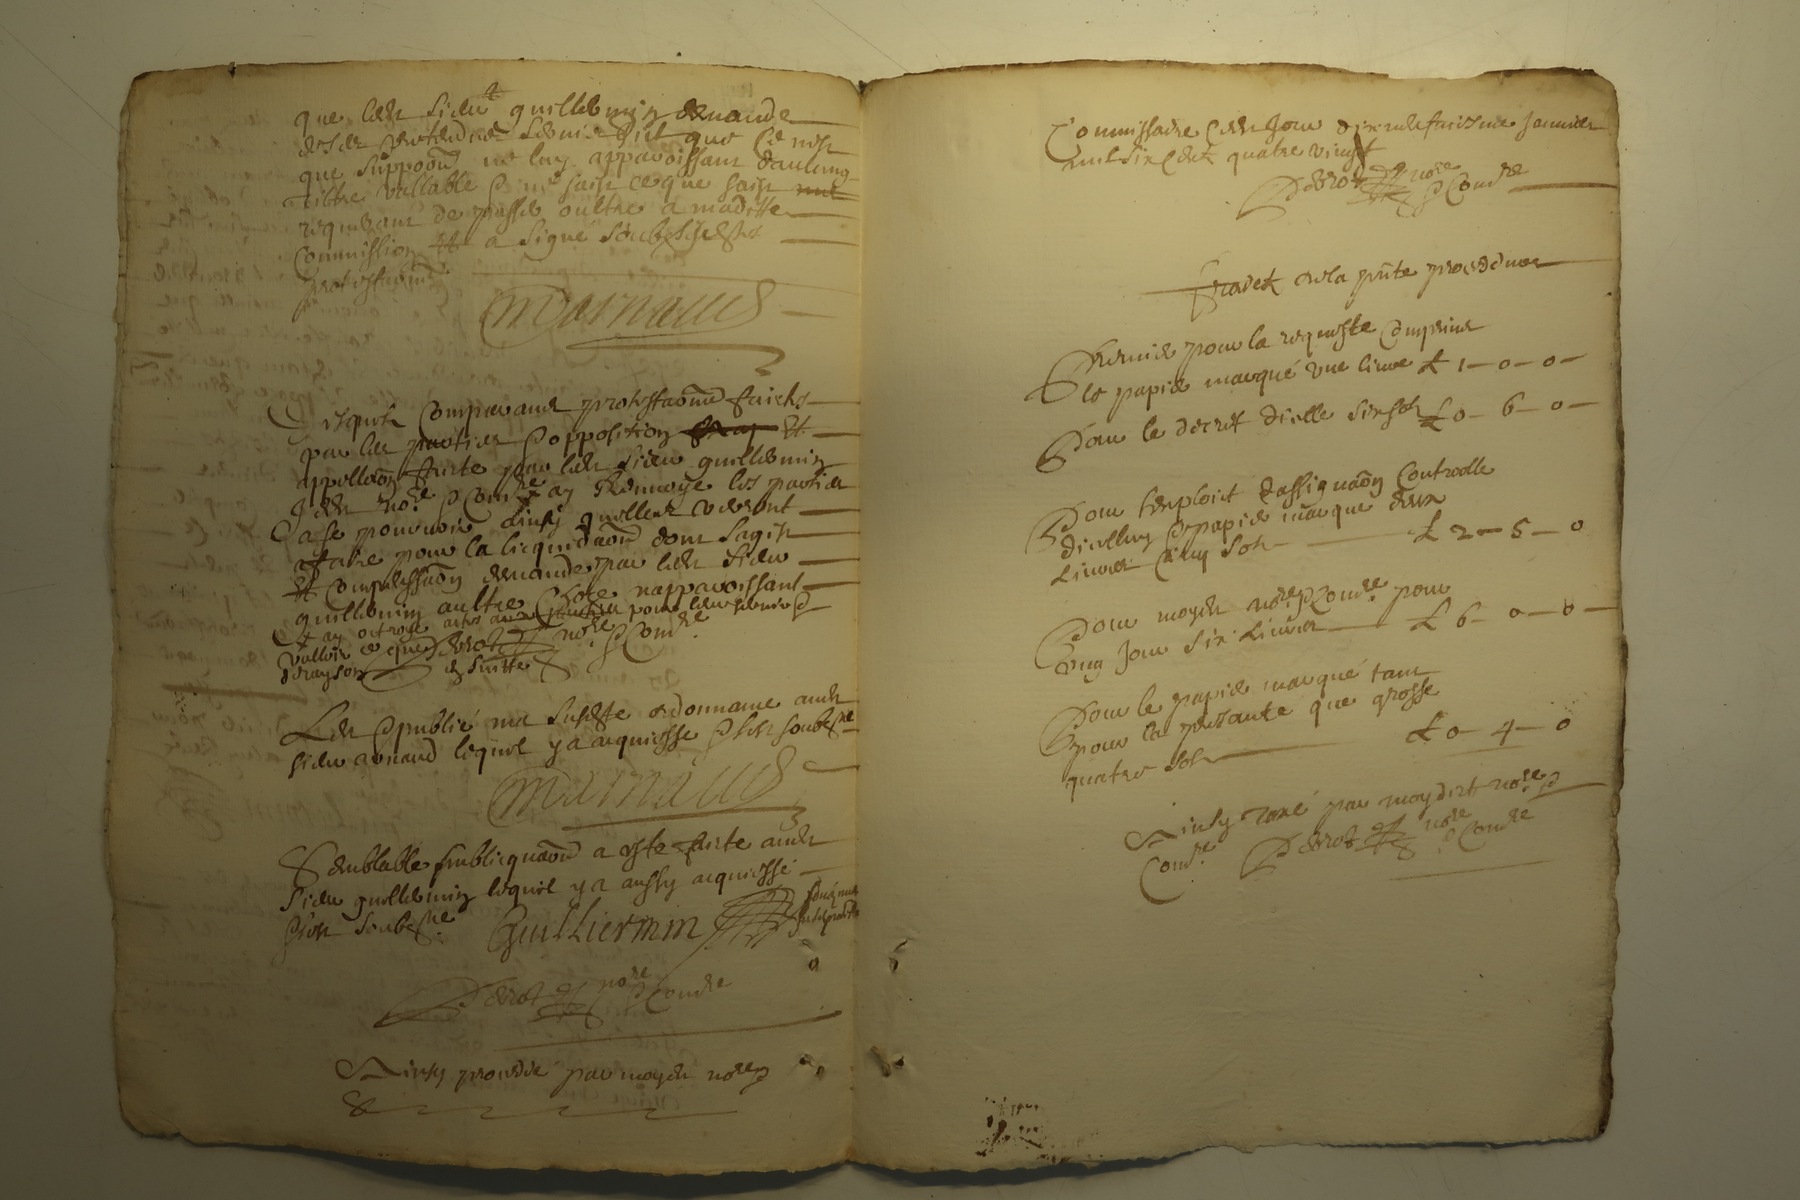 que led. sieur guilliermin demande
que suppoon. ne luy apparoissant daulcung
tiltre vallable
requerant de passer oultre a maditte
commission et a signé soubz lesdes.
protestaons.
Marnaud
comparans protestaons faictes
par les parties opposition et
appellaon faicte par led. sieur guilliermin
Je d. no.re Com.re ay renvoyé les parties
a se pourvoir ainsy quelles verront
a faire pour la licquidaon dont sagist
et compensaon demandée par led. sieur
guilliermin aultre chose napparoissant
Et ay octroyé actes aux parties pour leur servir
valloir ce que de rayson Perrot no.re Com.re
et en suitte
sieur arnaud lequel y a acquiessé
Marnaud
Semblable publicquaon a esté faicte aud.
sieur guilliermin lequel y a aussy acquiessé
Guilliermin
Perrot no.re Com.re
Ainsy procedé par moy d. no.re
Commissaire led. Jour dixneufviesme Janvier
mil six cent quatre vingt
Perrot no.re Com.re
Fraict de la p.nte procedure
Premier pour la requeste comprins
le papier marqué une livre £ 1 — 0 — 0 —
Pour le decret dicelle six sols £ 0 — 6 — 0 —
Pour lexploict dassignaon Controolle
dicelluy papier marque deux
Livres cinq sols £ 2 — 5 — 0
Pour moyd. no.re Com.re pour
ung Jour six Livres £ 6 — 0 — 0 —
Pour le papier marqué tant
pour la presante que grosse
quatre sols £ 0 — 4 — 0
Ainsy taxé par moydit no.re
Com.re Perrot no.re Com.re